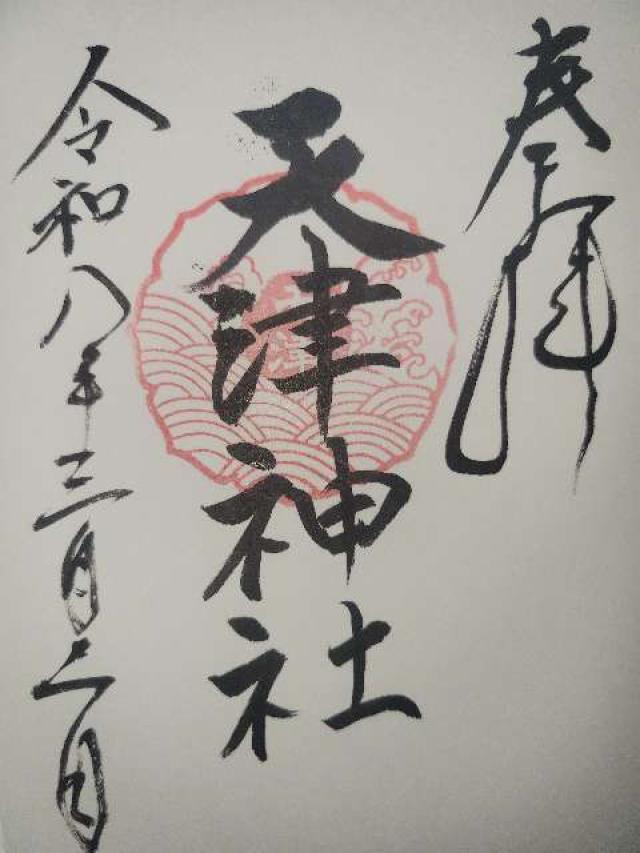 奉拝
天津神社
令和八年三月二日